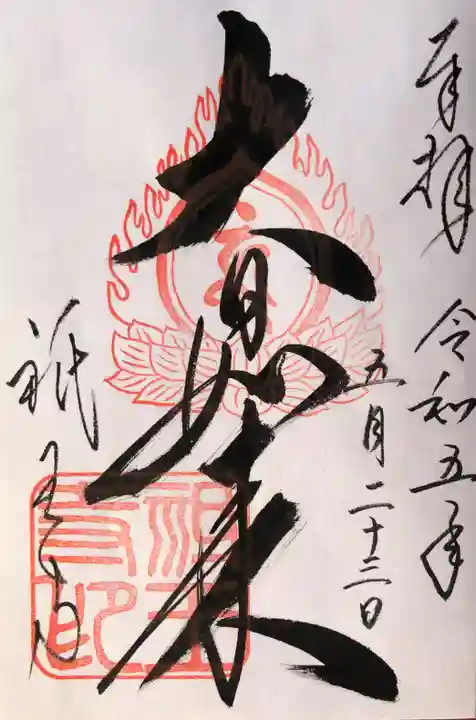 奉拝 令和五年
五月二十三日
大日如来
祇王寺
祇王
寺印